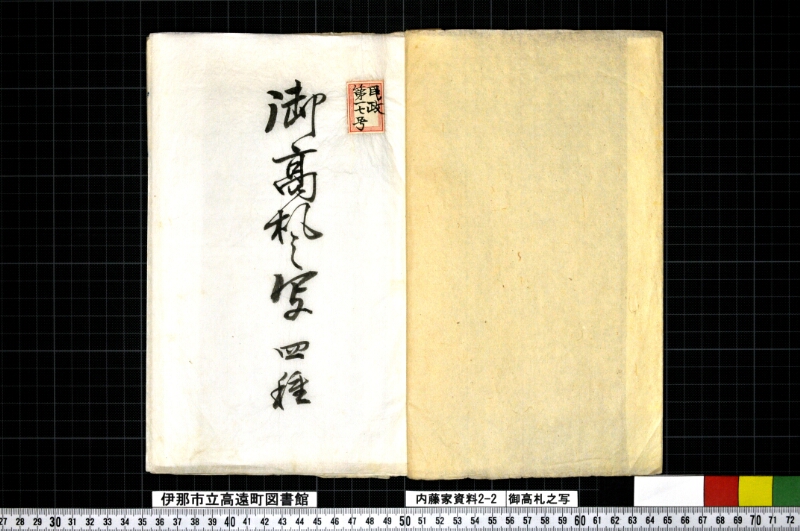 民政
第一七号
御高札之写 四種
伊那市立高遠町図書館
内藤家資料2-2
御高札之写
27 28 29 30 31 32 33 34 35 36 37 38 39 40 41 42 43 44 45 46 47 48 49 50 51 52 53 54 55 56 57 58 59 60 61 62 63 64 65 66 67 68 69 70 71 72